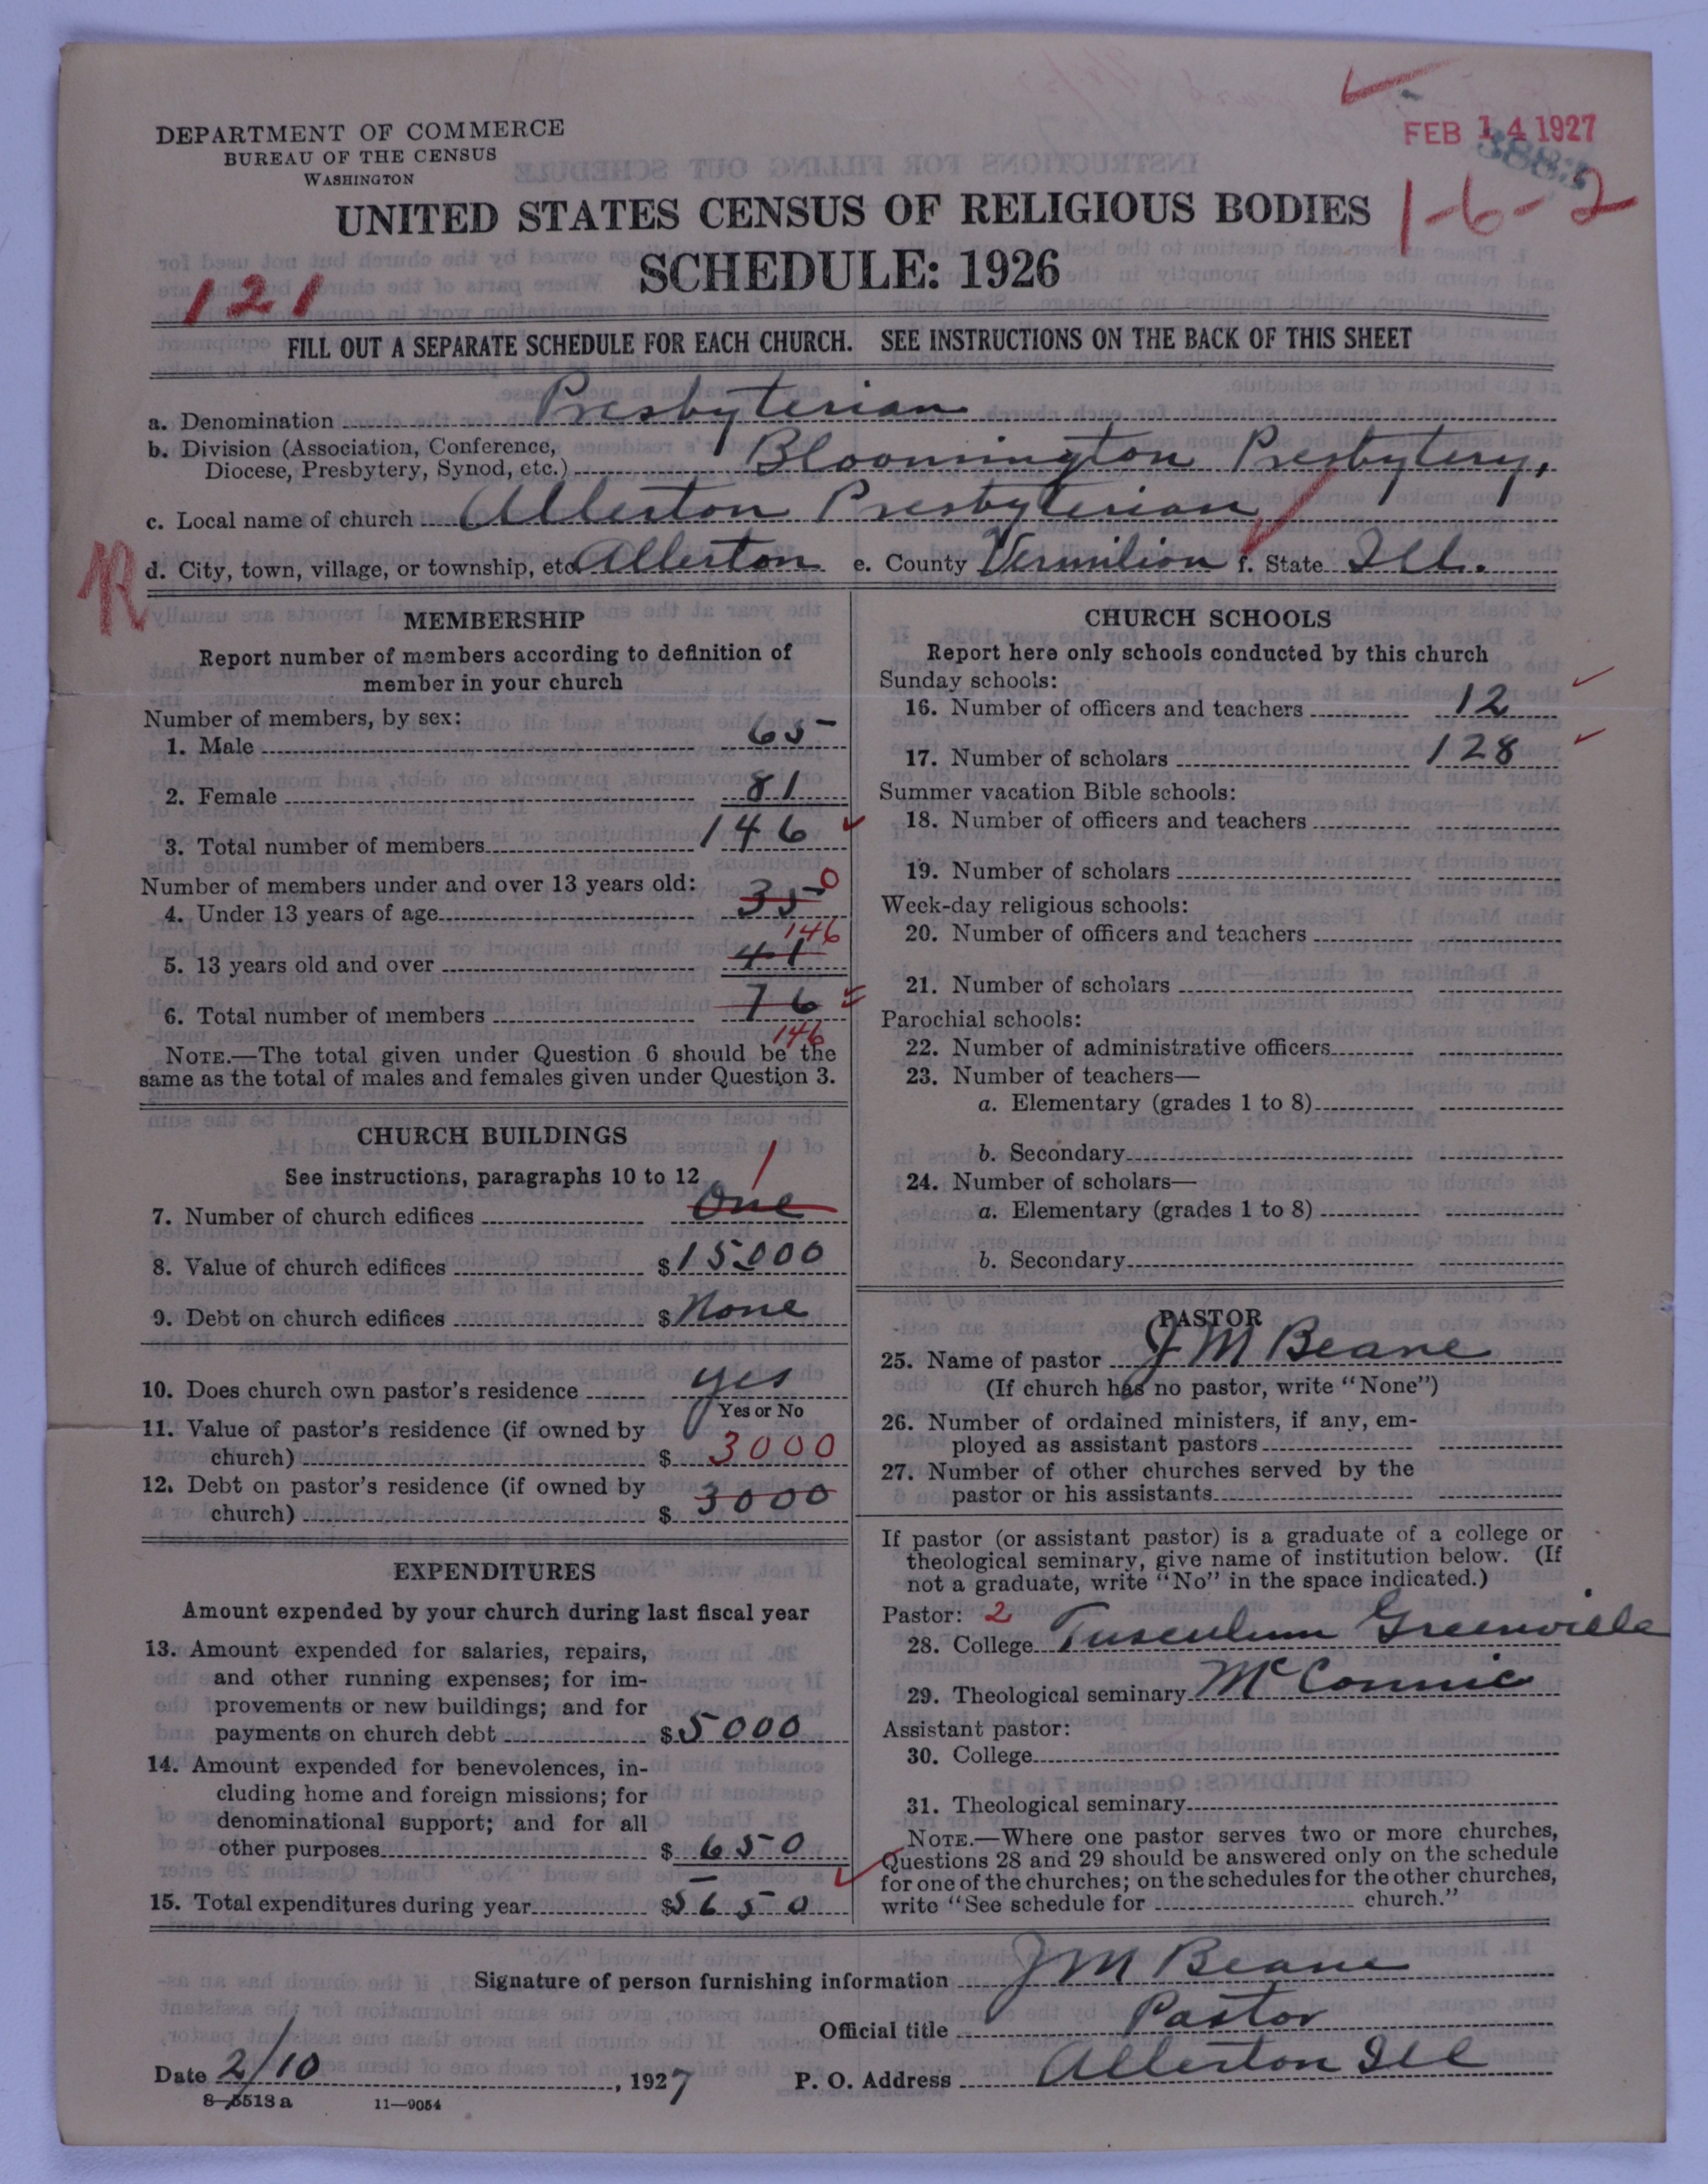 DEPARTMENT OF COMMERCE
BUREAU OF THE CENSUS
WASHINGTON
FEB 14 1927
1-6-2
UNITED STATES CENSUS OF RELIGIOUS BODIES
SCHEDULE: 1926
121
FILL OUT A SEPARATE SCHEDULE FOR EACH CHURCH. SEE INSTRUCTIONS ON THE BACK OF THIS SHEET
a. Denomination Presbyterian
b. Division (Association, Conference,
Diocese, Presbytery, Synod, etc.) Bloomington Presbytery,
c. Local name of church Allerton Presbyterian
R d. City, town, village, or township, etc. Allerton e. County Vermilion f. State Ill.
MEMBERSHIP
Report number of members according to definition of
member in your church
Number of members, by sex:
1. Male 65
2. Female 81
3. Total number of members 146
Number of members under and over 13 years old:
4. Under 13 years of age 35 0
146
5. 13 years old and over 41
6. Total number of members 76
146
NOTE.—The total given under Question 6 should be the
same as the total of males and females given under Question 3.
CHURCH BUILDINGS
See instructions, paragraphs 10 to 12
1
7. Number of church edifices One
8. Value of church edifices $ 15000
9. Debt on church edifices $ None
10. Does church own pastor's residence yes
Yes or No
11. Value of pastor's residence (if owned by
church) $ 3000
12. Debt on pastor's residence (if owned by
church) $ 3000
EXPENDITURES
Amount expended by your church during last fiscal year
13. Amount expended for salaries, repairs,
and other running expenses; for im-
provements or new buildings; and for
payments on church debt $ 5000
14. Amount expended for benevolences, in-
cluding home and foreign missions; for
denominational support; and for all
other purposes $ 650
15. Total expenditures during year $ 5650
CHURCH SCHOOLS
Report here only schools conducted by this church
Sunday schools:
16. Number of officers and teachers 12
17. Number of scholars 128
Summer vacation Bible schools:
18. Number of officers and teachers
19. Number of scholars
Week-day religious schools:
20. Number of officers and teachers
21. Number of scholars
Parochial schools:
22. Number of administrative officers
23. Number of teachers—
a. Elementary (grades 1 to 8)
b. Secondary
24. Number of scholars—
a. Elementary (grades 1 to 8)
b. Secondary
PASTOR
25. Name of pastor J M Beane
(If church has no pastor, write "None")
26. Number of ordained ministers, if any, em-
ployed as assistant pastors
27. Number of other churches served by the
pastor or his assistants
If pastor (or assistant pastor) is a graduate of a college or
theological seminary, give name of institution below. (If
not a graduate, write "No" in the space indicated.)
Pastor: 2
28. College Tusculum Greenville
29. Theological seminary McCormic
Assistant pastor:
30. College
31. Theological seminary
NOTE.—Where one pastor serves two or more churches,
Questions 28 and 29 should be answered only on the schedule
for one of the churches; on the schedules for the other churches,
write "See schedule for church."
Signature of person furnishing information J M Beane
Official title Pastor
Date 2/10, 1927 P. O. Address Allerton Ill
8—5513a 11—9054